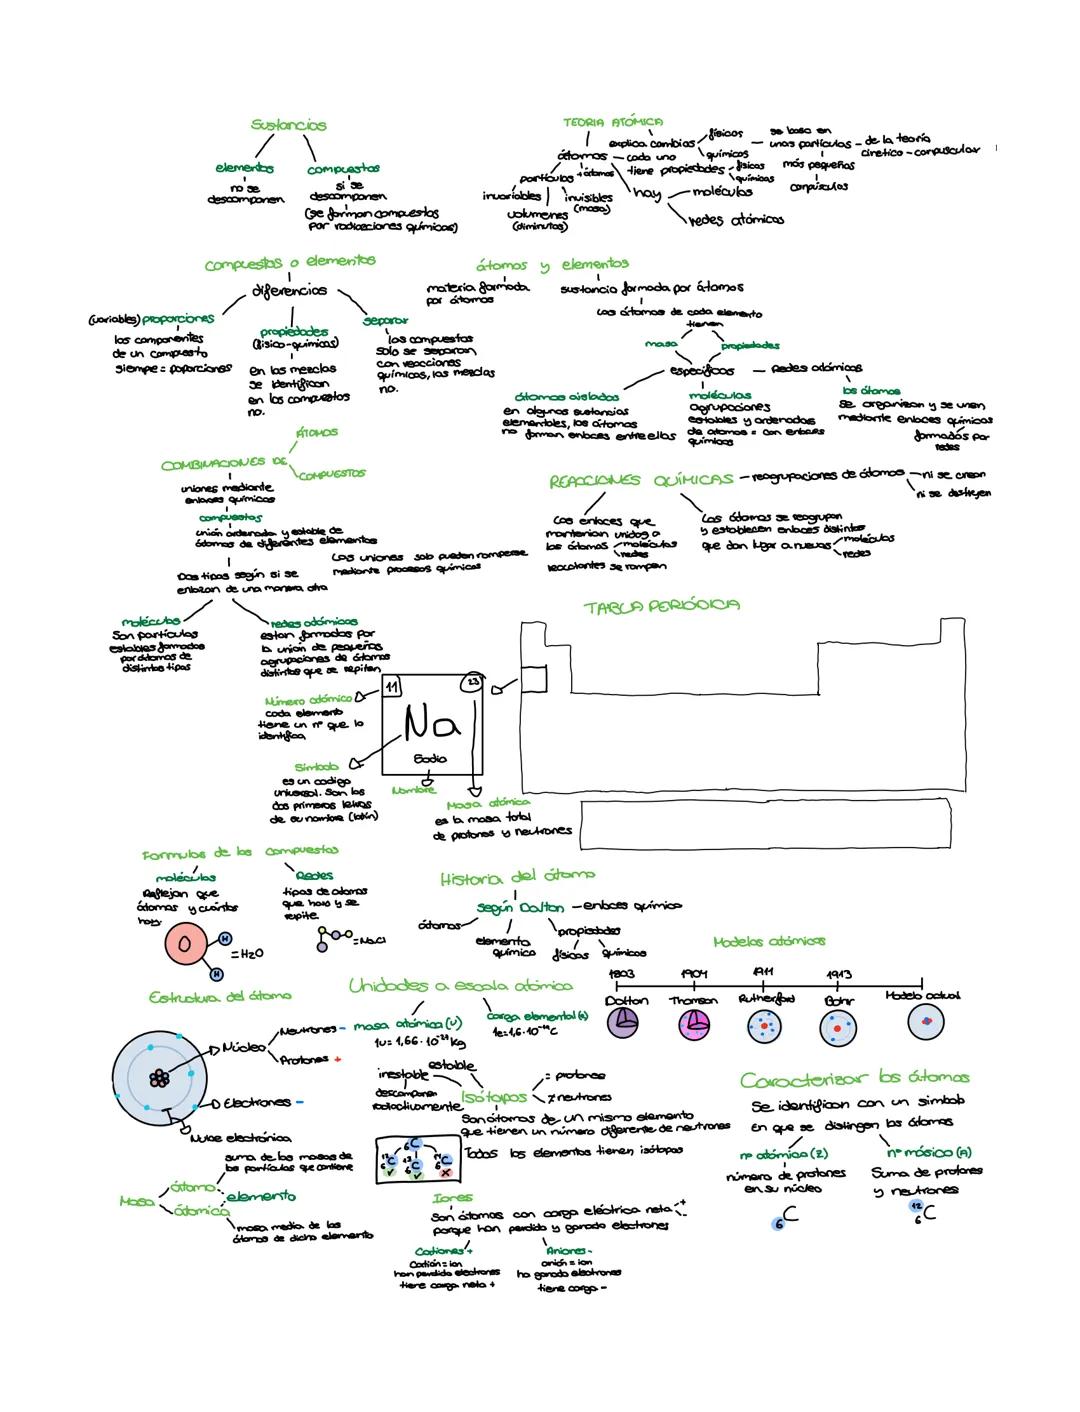 Sustancias
elementos
no se
descomponen
compuestos
si se
descomponen
(se forman compuestos
por radiaciones químicas)
TEORIA ATÓMICA
explica cambios
físicos
químicos
se basa en
unas partículas
más pequeñas
corpúsculos
de la teoría
cinetico-corpuscular
átomos
cada uno
tiene propiedades
físicas
químicas
partículas
invariables
volumenes
(diminutos)
invisibles
(masa)
hay
moléculas
redes atómicas
compuestos o elementos
diferencias
(variables) proporciones
los componentes
de un compuesto
siempe = poporciones
propiedades
(físico-químicas)
en las mezclas
se identifican
en los compuestos
no.
separar
los compuestos
sólo se separan
con reacciones
químicas, las mezclas
no.
átomos y elementos
materia formada
por átomos
sustancia formada por átomos
Los átomos de cada elemento
tienen
masa
propiedades
específicas
Redes atómicas
átomos aislados
en algunos sustancias
elementales, los átomos
no forman enlaces entre ellos
moléculas
agrupaciones
estables y ordenadas
de átomos = con enlaces
químicos
los átomos
se organizan y se unen
mediante enlaces químicos
formados por
redes
COMBINACIONES DE
ÁTOMOS
COMPUESTOS
uniones mediante
enlaces químicos
compuestos
unión ordenada y estable de
átomos de diferentes elementos
Las uniones solo pueden romperse
mediante procesos químicos
Dos tipos según si se
enlazan de una manera otra
moléculas
Son partículas
estables formadas
por átomos de
distintos tipos
redes atómicas
estan formadas por
la union de pequeñas
agrupaciones de átomos
distintos que se repiten
REACCIONES QUÍMICAS
reagrupaciones de átomos
ni se crean
ni se destruyen
Los enlaces que
mantenian unidos a
los átomos
moléculas
redes
se rompen
Los átomos se reagrupan
y establecen enlaces distintos
que dan lugar a nuevas
moléculas
redes
TABLA PERIÓDICA
11
23
Na
Sodio
Número atómico
cada elemento
tiene un nº que lo
identifica,
Símbolo
es un codigo
universal. Son las
dos primeros letras
de su nombre (latín)
Nombre
Masa atómica
es la masa total
de protones y neutrones
Formulas de los compuestos
moléculas
Reflejan que
átomos y cuántos
hay.
O
H
H
=H2O
Redes
tipos de atomos
que hay y se
repite.
=NaCl
Historia del átomo
según Dalton
enlaces químico
átomos
elemento
químico
propiedades
físicas
químicas
Modelos atómicos
1803
1904
1911
1913
Dalton
Thomson
Rutherford
Bohr
Modelo actual
Estructura del átomo
Núcleo
Neutrones -
Protones +
Electrones -
Nube electrónica
Unidades a escala atómica
masa atómica (u)
carga elemental (e)
inestable
descomponen
radioactivamente
estable
Isótopos
= protones
≠ neutrones
Son átomos de un mismo elemento
que tienen un número diferente de neutrones
Todos los elementos tienen isótopos
6 C
12 6 C
13 6 C
14 6 C
Masa
átomo
atómica
suma de las masas de
las partículas que contiene
elemento
masa media de los
átomos de dicho elemento
Iones
Son átomos con carga eléctrica neta + -
porque han perdido y ganado electrones
Cationes +
Catión = ion
han perdido electrones
tiene carga neta +
Aniones -
anión = ion
ha ganado electrones
tiene carga -
Caracterizar los átomos
Se identifican con un simbolo
En que se distingen los átomos
nº atómico (Z)
número de protones
en su núcleo
6 C
nº másico (A)
Suma de protones
y neutrones
12 6 C